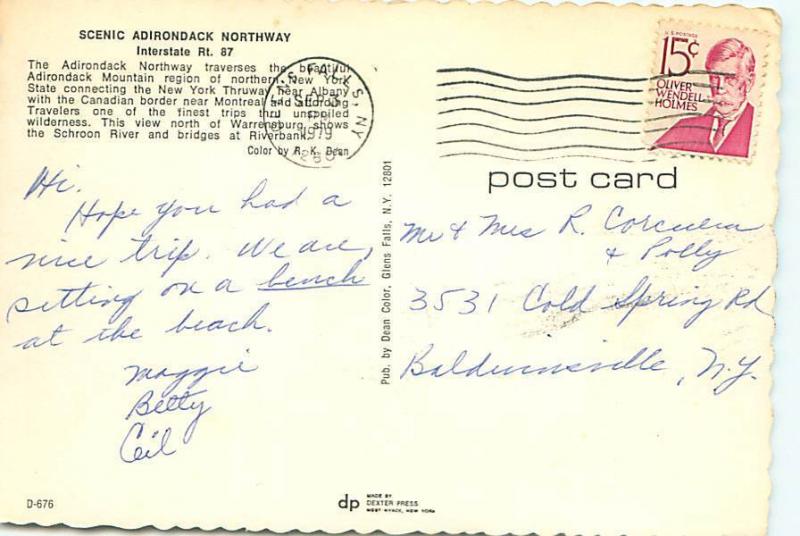 SCENIC ADIRONDACK NORTHWAY
Interstate Rt. 87
The Adirondack Northway traverses the beautiful
Adirondack Mountain region of northern New York
State connecting the New York Thruway near Albany
with the Canadian border near Montreal and affording
Travelers one of the finest trips thru unspoiled
wilderness. This view north of Warrensburg shows
the Schroon River and bridges at Riverbank.
Color by R. K. Dean
FALLS, NY
SEP
1979
U.S. POSTAGE
15¢
OLIVER
WENDELL
HOLMES
post card
Hi.
Hope you had a
nice trip. We are
setting on a bench
at the beach.
Maggie
Betty
Ceil
Pub. by Dean Color, Glens Falls, N.Y. 12801
Mr & Mrs R. Corcuera
& Polly
3531 Cold Spring Rd
Baldwinsville, N.Y.
D-676
dp
MADE BY
DEXTER PRESS
WEST NYACK, NEW YORK